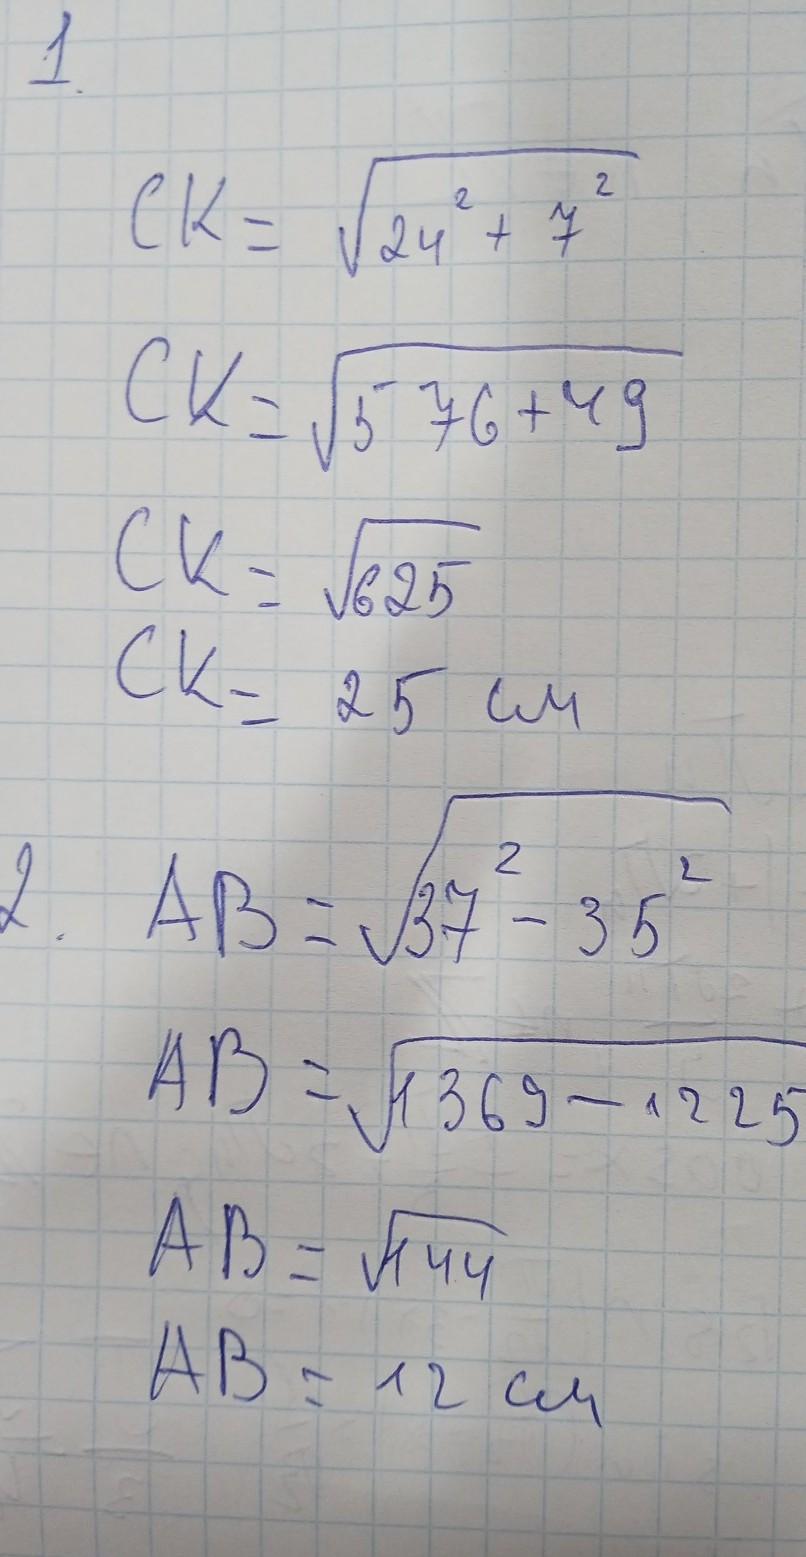 1.
CK = √24² + 7²
CK = √576 + 49
CK = √625
CK = 25 см
2. AB = √37² - 35²
AB = √1369 - 1225
AB = √144
AB = 12 см